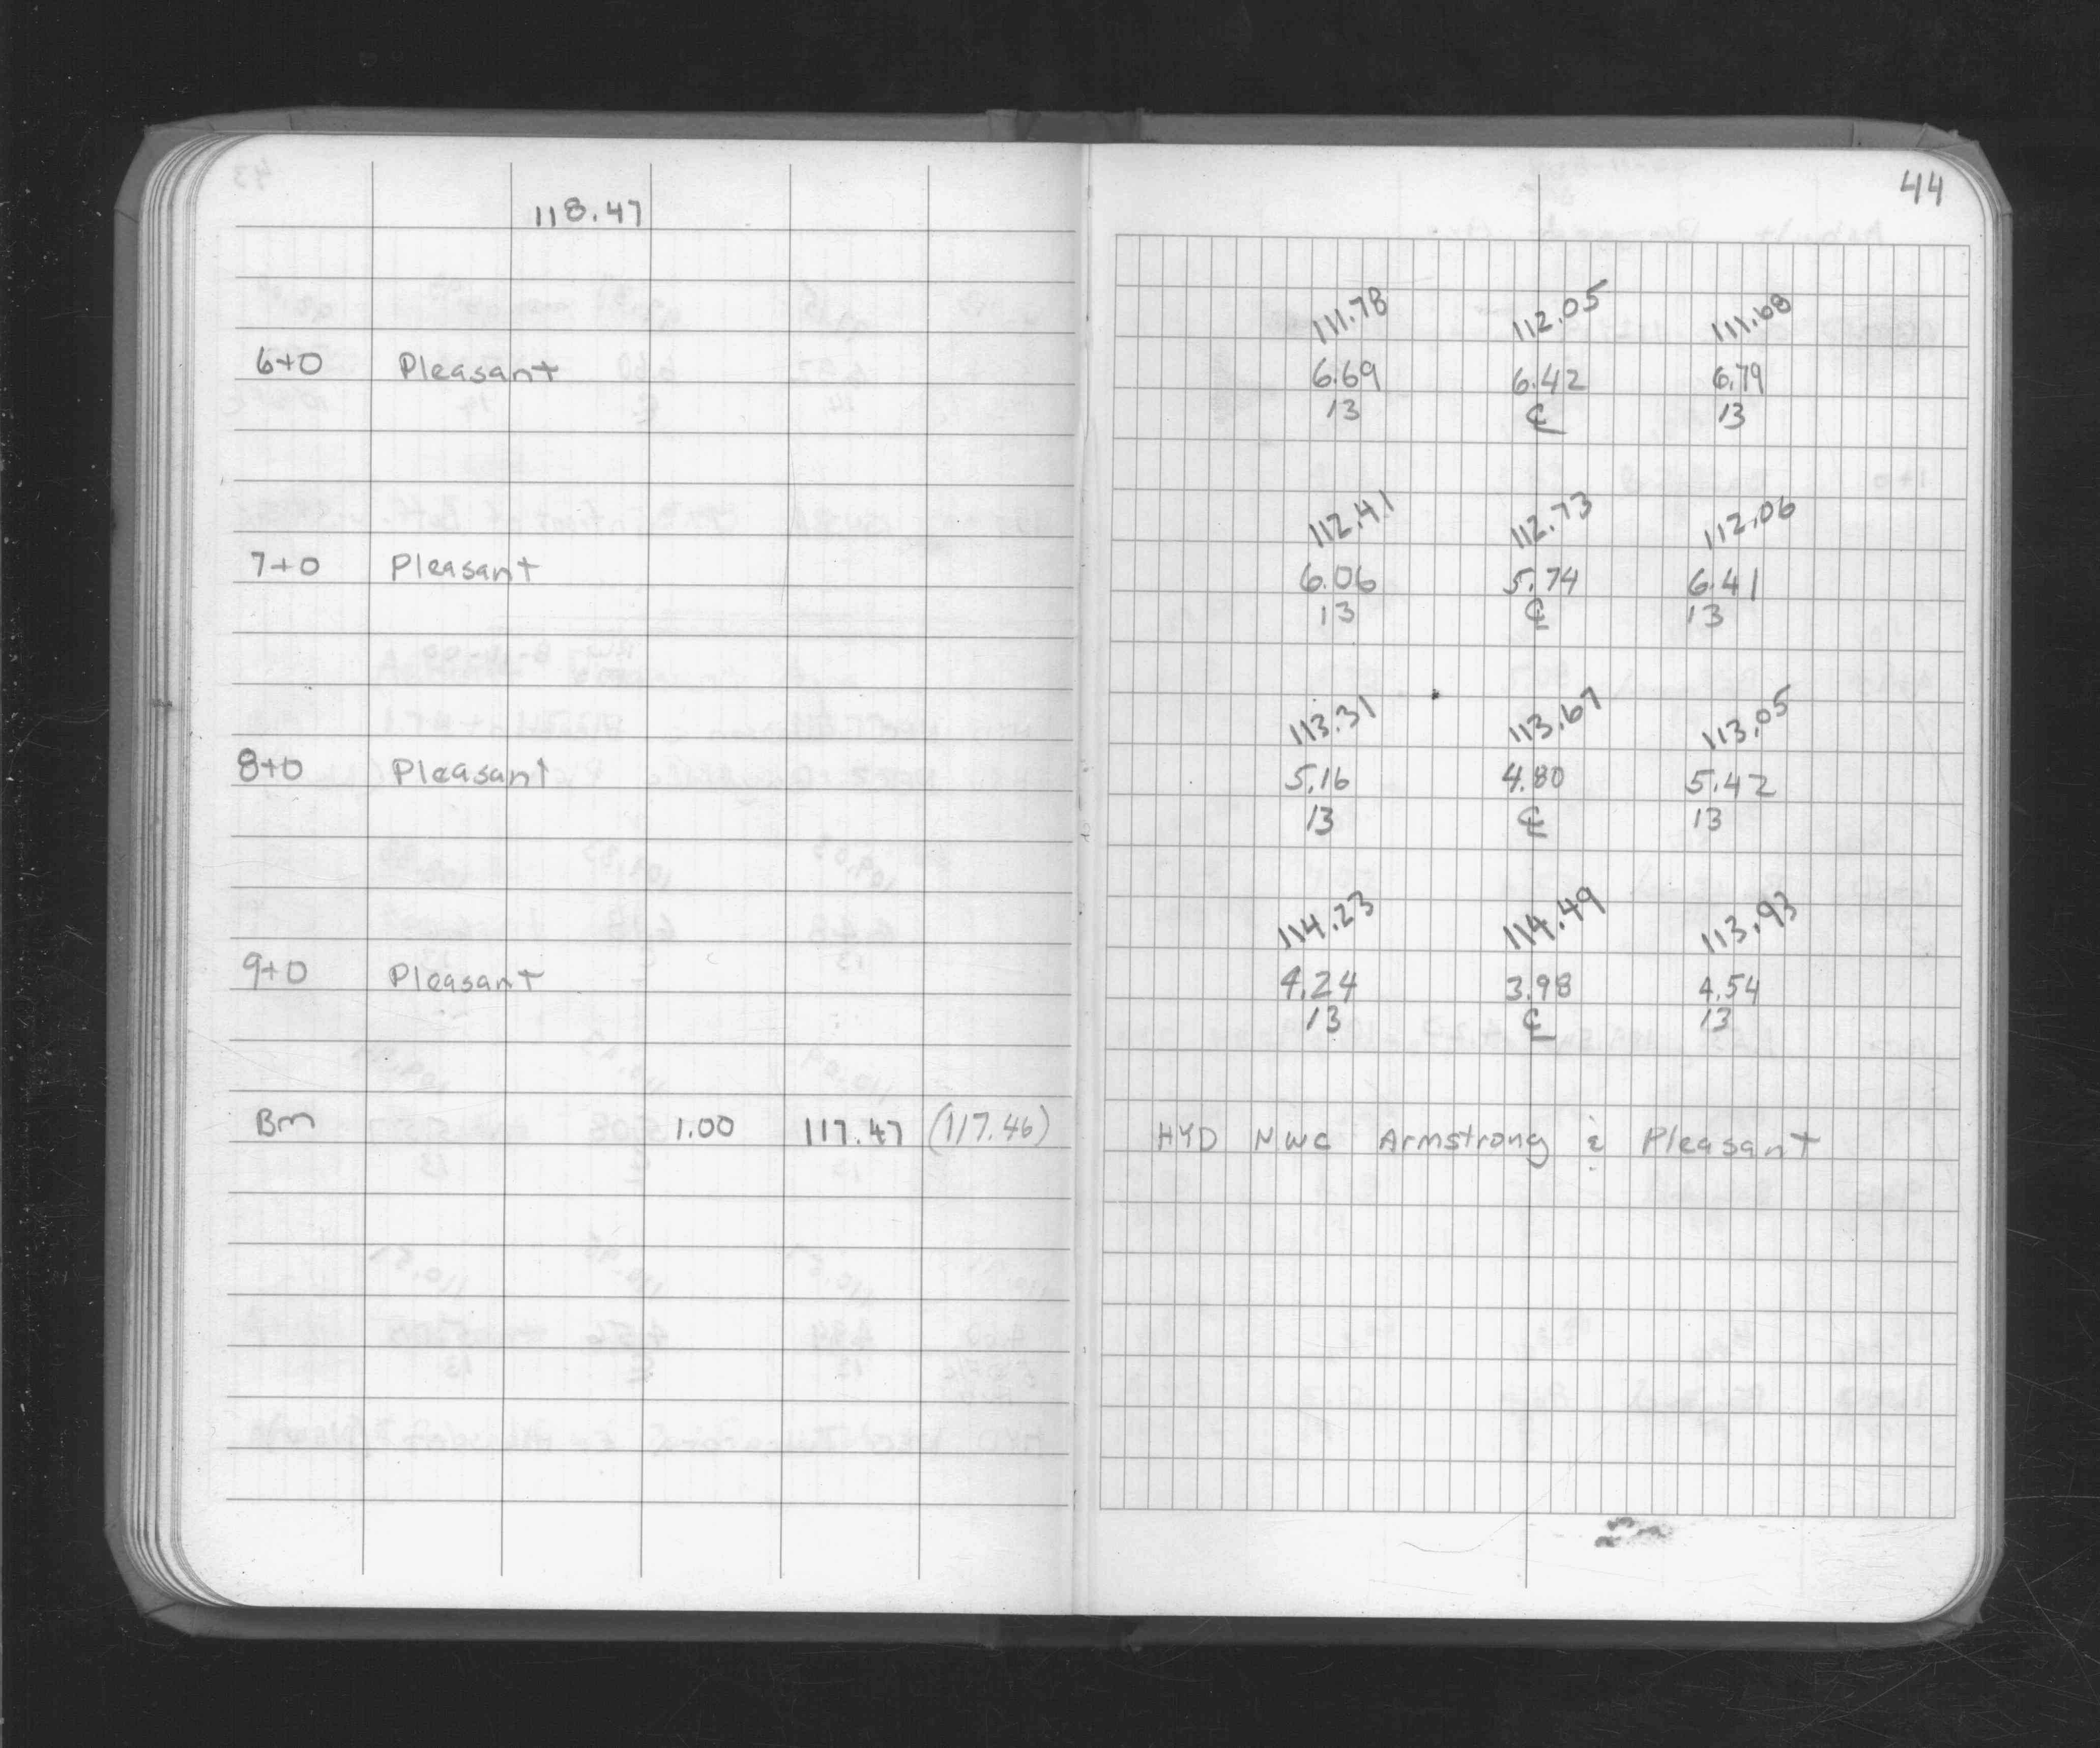 44
118.47
111.78 112.05 111.68
6+0 Pleasant 6.69 6.42 6.79
13 ℄ 13
112.41 112.73 112.06
7+0 Pleasant 6.06 5.74 6.41
13 ℄ 13
113.31 113.67 113.05
8+0 Pleasant 5.16 4.80 5.42
13 ℄ 13
114.23 114.49 113.93
9+0 Pleasant 4.24 3.98 4.54
13 ℄ 13
Bm 1.00 117.47 (117.46) HYD NWC Armstrong & Pleasant